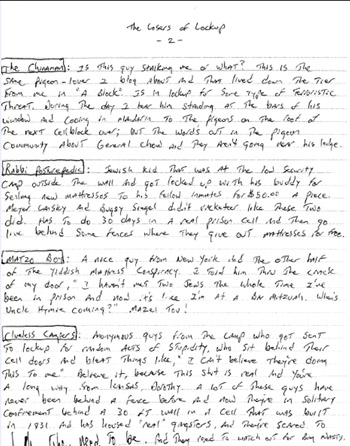 The Losers of Lockup
- 2 -
The Chinaman: Is this guy stalking me or what? This is the
same pigeon-lover I blog about and that lived down the tier
from me in "A Block". Is in lockup for some type of Terroristic
Threat. During the day I hear him standing at the bars of his
window and cooing in Mandarin to the pigeons on the roof of
the next cellblock over; but the word's out in the pigeon
community about General Chow and they aren't going near his ledge.
Rabbi Posturepedic: Jewish kid that was at the low security
camp outside the wall and got locked up with his buddy for
selling new mattresses to his fellow inmates for $50.00 a piece.
Meyer Lansky and Bugsy Siegel didn't racketeer like these two
did. Has to do 30 days in a real prison cell and then go
live behind some fences where they give out mattresses for free.
Matzo Boy: A nice guy from New York and the other half
of the Yiddish Mattress Conspiracy. I told him thru the crack
of my door, "I haven't met two Jews the whole time I've
been in prison and now it's like I'm at a Bar Mitzvah. When's
Uncle Hymie coming?" Mazel Tov!
Clueless Campers: Anonymous guys from the camp who got sent
to lockup for random acts of stupidity, who sit behind their
cell doors and bleat things like, "I can't believe they're doing
this to me". Believe it, because this shit is real and you're
a long way from Kansas, Dorothy. A lot of these guys have
never been behind a fence before and now they're in solitary
confinement behind a 30 ft wall in a cell that was built
in 1831 and has housed "real" gangsters, and they're scared to
need to be. And they need to watch out for Big Nasty,